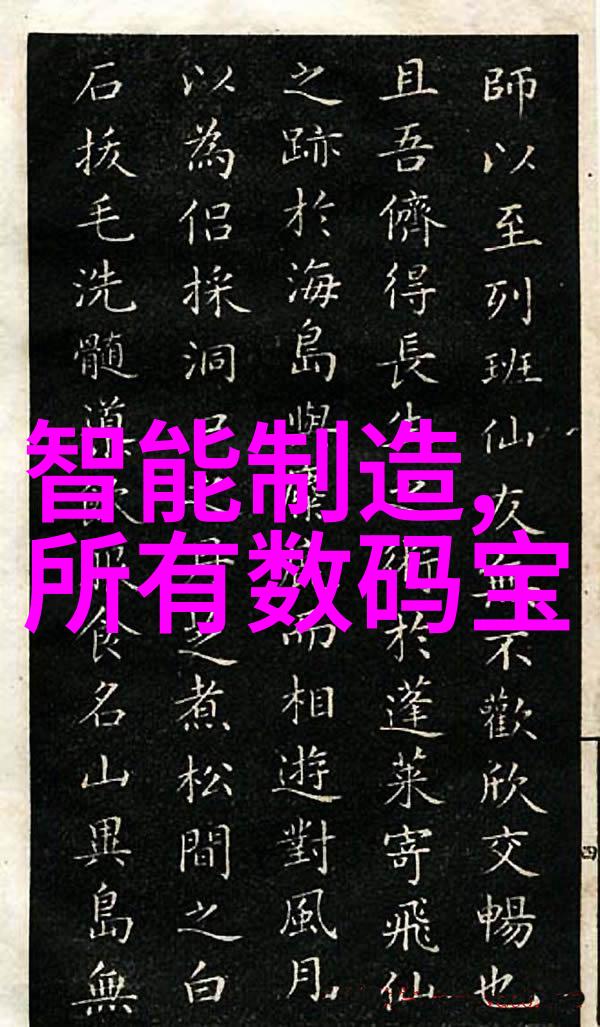 智能制造,
所有数码宝
師以至列班仙友無不歡欣交暢也
且吾儕得長生之術於蓬萊寄飛仙
之跡於海島與麋鹿而相遊對風月
以為侶採洞之煮松間之白
石拔毛洗髓飲服食名山異島無
四